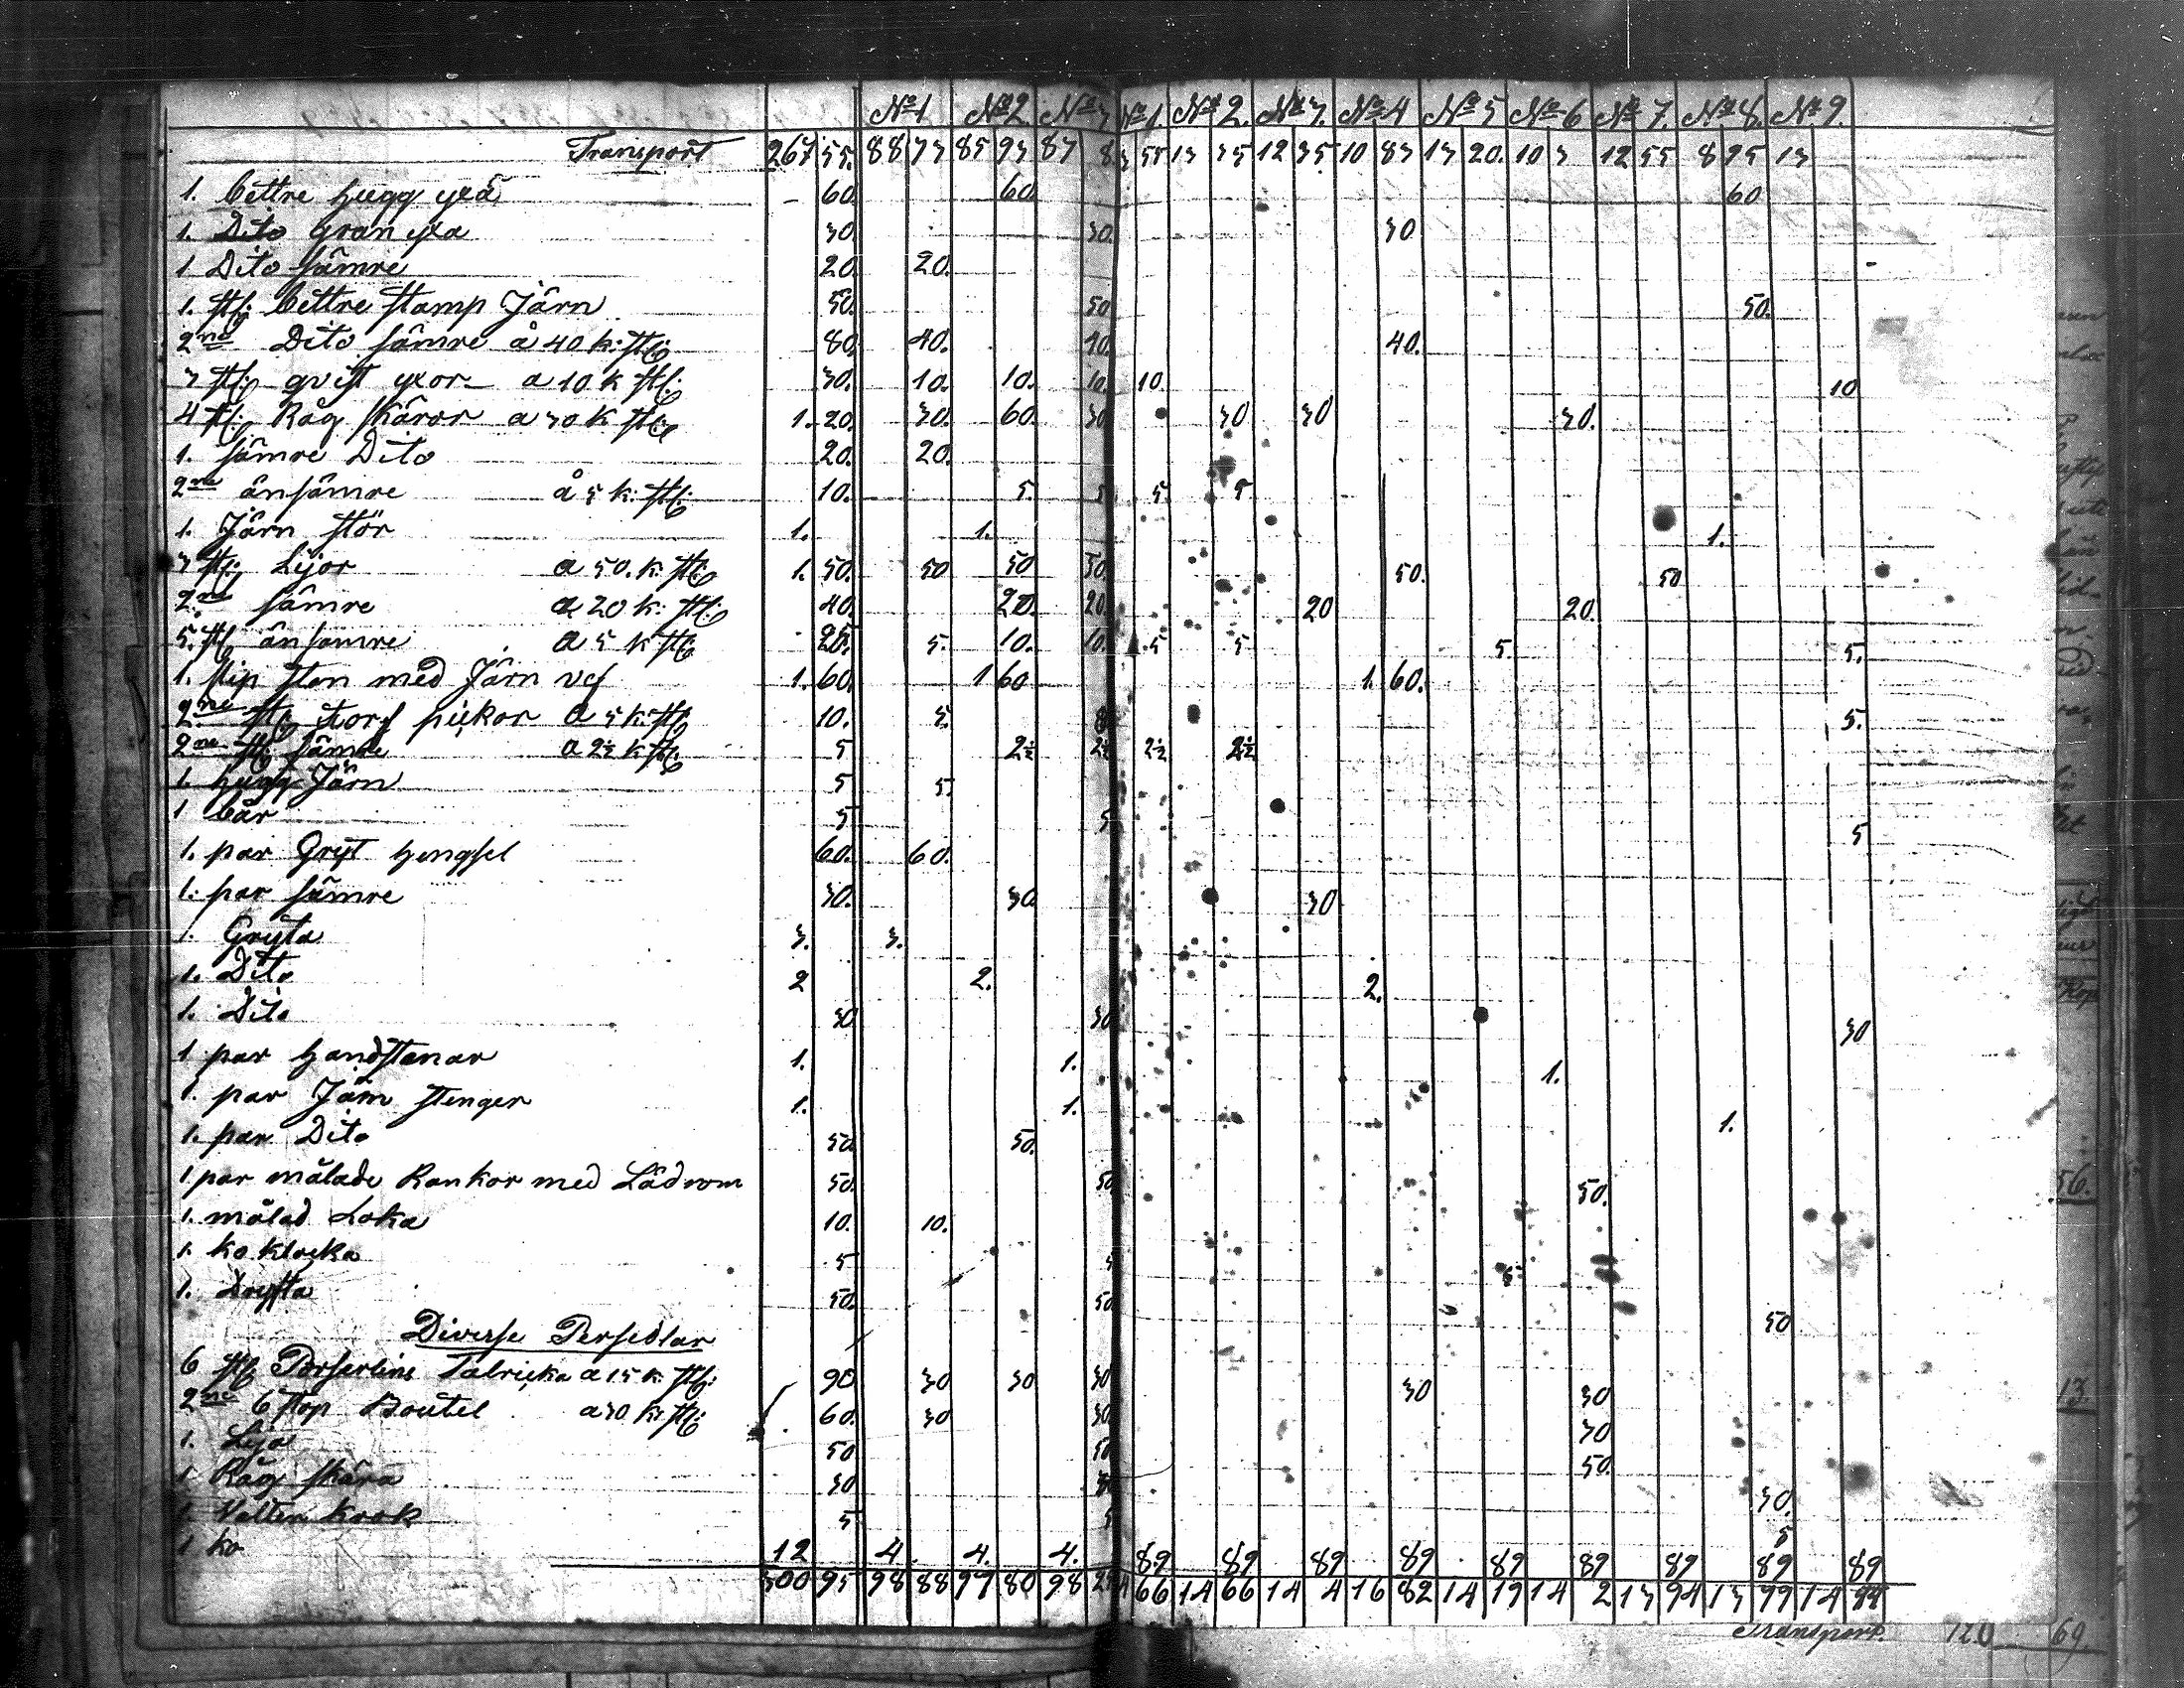 No 1 No 2 No 3 No 1. No 2. No 3. No 4 No 5 No 6 No 7. No 8. No 9.
Transport 267 55. 88 73 85 93 87 8 55 13 35 12 35 10 83 13 20. 10 3 12 55 8 95 13
1. bettre hugg yxa 60. 60. 60
1. Dito Gran yxa 30. 30. 30
1 Dito sämre 20. 20.
1. st: bettre stamp Järn 50. 50 50.
2ne Dito sämre à 40 k: st: 80. 40. 40. 40.
3 st: qvist yxor a 10 k st: 30. 10. 10. 10. 10 10
4 st: Råg skäror a 30 k st: 1. 20. 30. 60. 30 30 30 30.
1. sämre Dito 20. 20.
2ne änsämre à 5 k: st: 10. 5. 5 5. 5
1. Järn stör 1. 1. 1.
3 st: Lijor a 50. k. st: 1. 50. 50 50 50. 50. 50
2ne sämre a 20 k: st: 40. 20. 20. 20 20.
5. st: änsämre a 5 k st: 25. 5. 10. 10. 5 5 5. 5.
1. slip sten med Järn vef 1. 60. 1 60 1. 60.
2ne st: torf hickor a 5 k: st: 10. 5. 5.
2ne st: sämre a 2½ k st: 5 2½ 2½ 2½ 2½
1. hugg Järn 5 5.
1 bår 5 5 5
1. par Gryt hengsel 60. 60.
1. par sämre 30. 30. 30
1. Gryta 3. 3.
1. Dito 2 2. 2.
1. Dito 30 30 30
1 par handstenar 1. 1. 1.
1. par Järn stenger 1. 1. 1.
1. par Dito 50. 50.
1 par målade Rankor med 50. 50 50.
1. målad Loka 10. 10.
1. ko klocka 5 5 5
1. Dryfta 50. 50 50
Diverse Persedlar
6 st: Porserlins Talricka a 15 k. st: 90 30 30 30 30 30
2ne 6 stop Boutel a 30 k: st: 60. 30 30. 30
1. Lija 50 50 50.
1 Råg skära 30 30.
1. Vatten krok 5 5 5
1 ko 12 4. 4. 4. 89 89 89 89 89 89 89 89 89
300 95 98 88 80 98 66 14 66 14 4 16 82 14 19 14 2 13 94 13 99 14
Transport. 120 69.